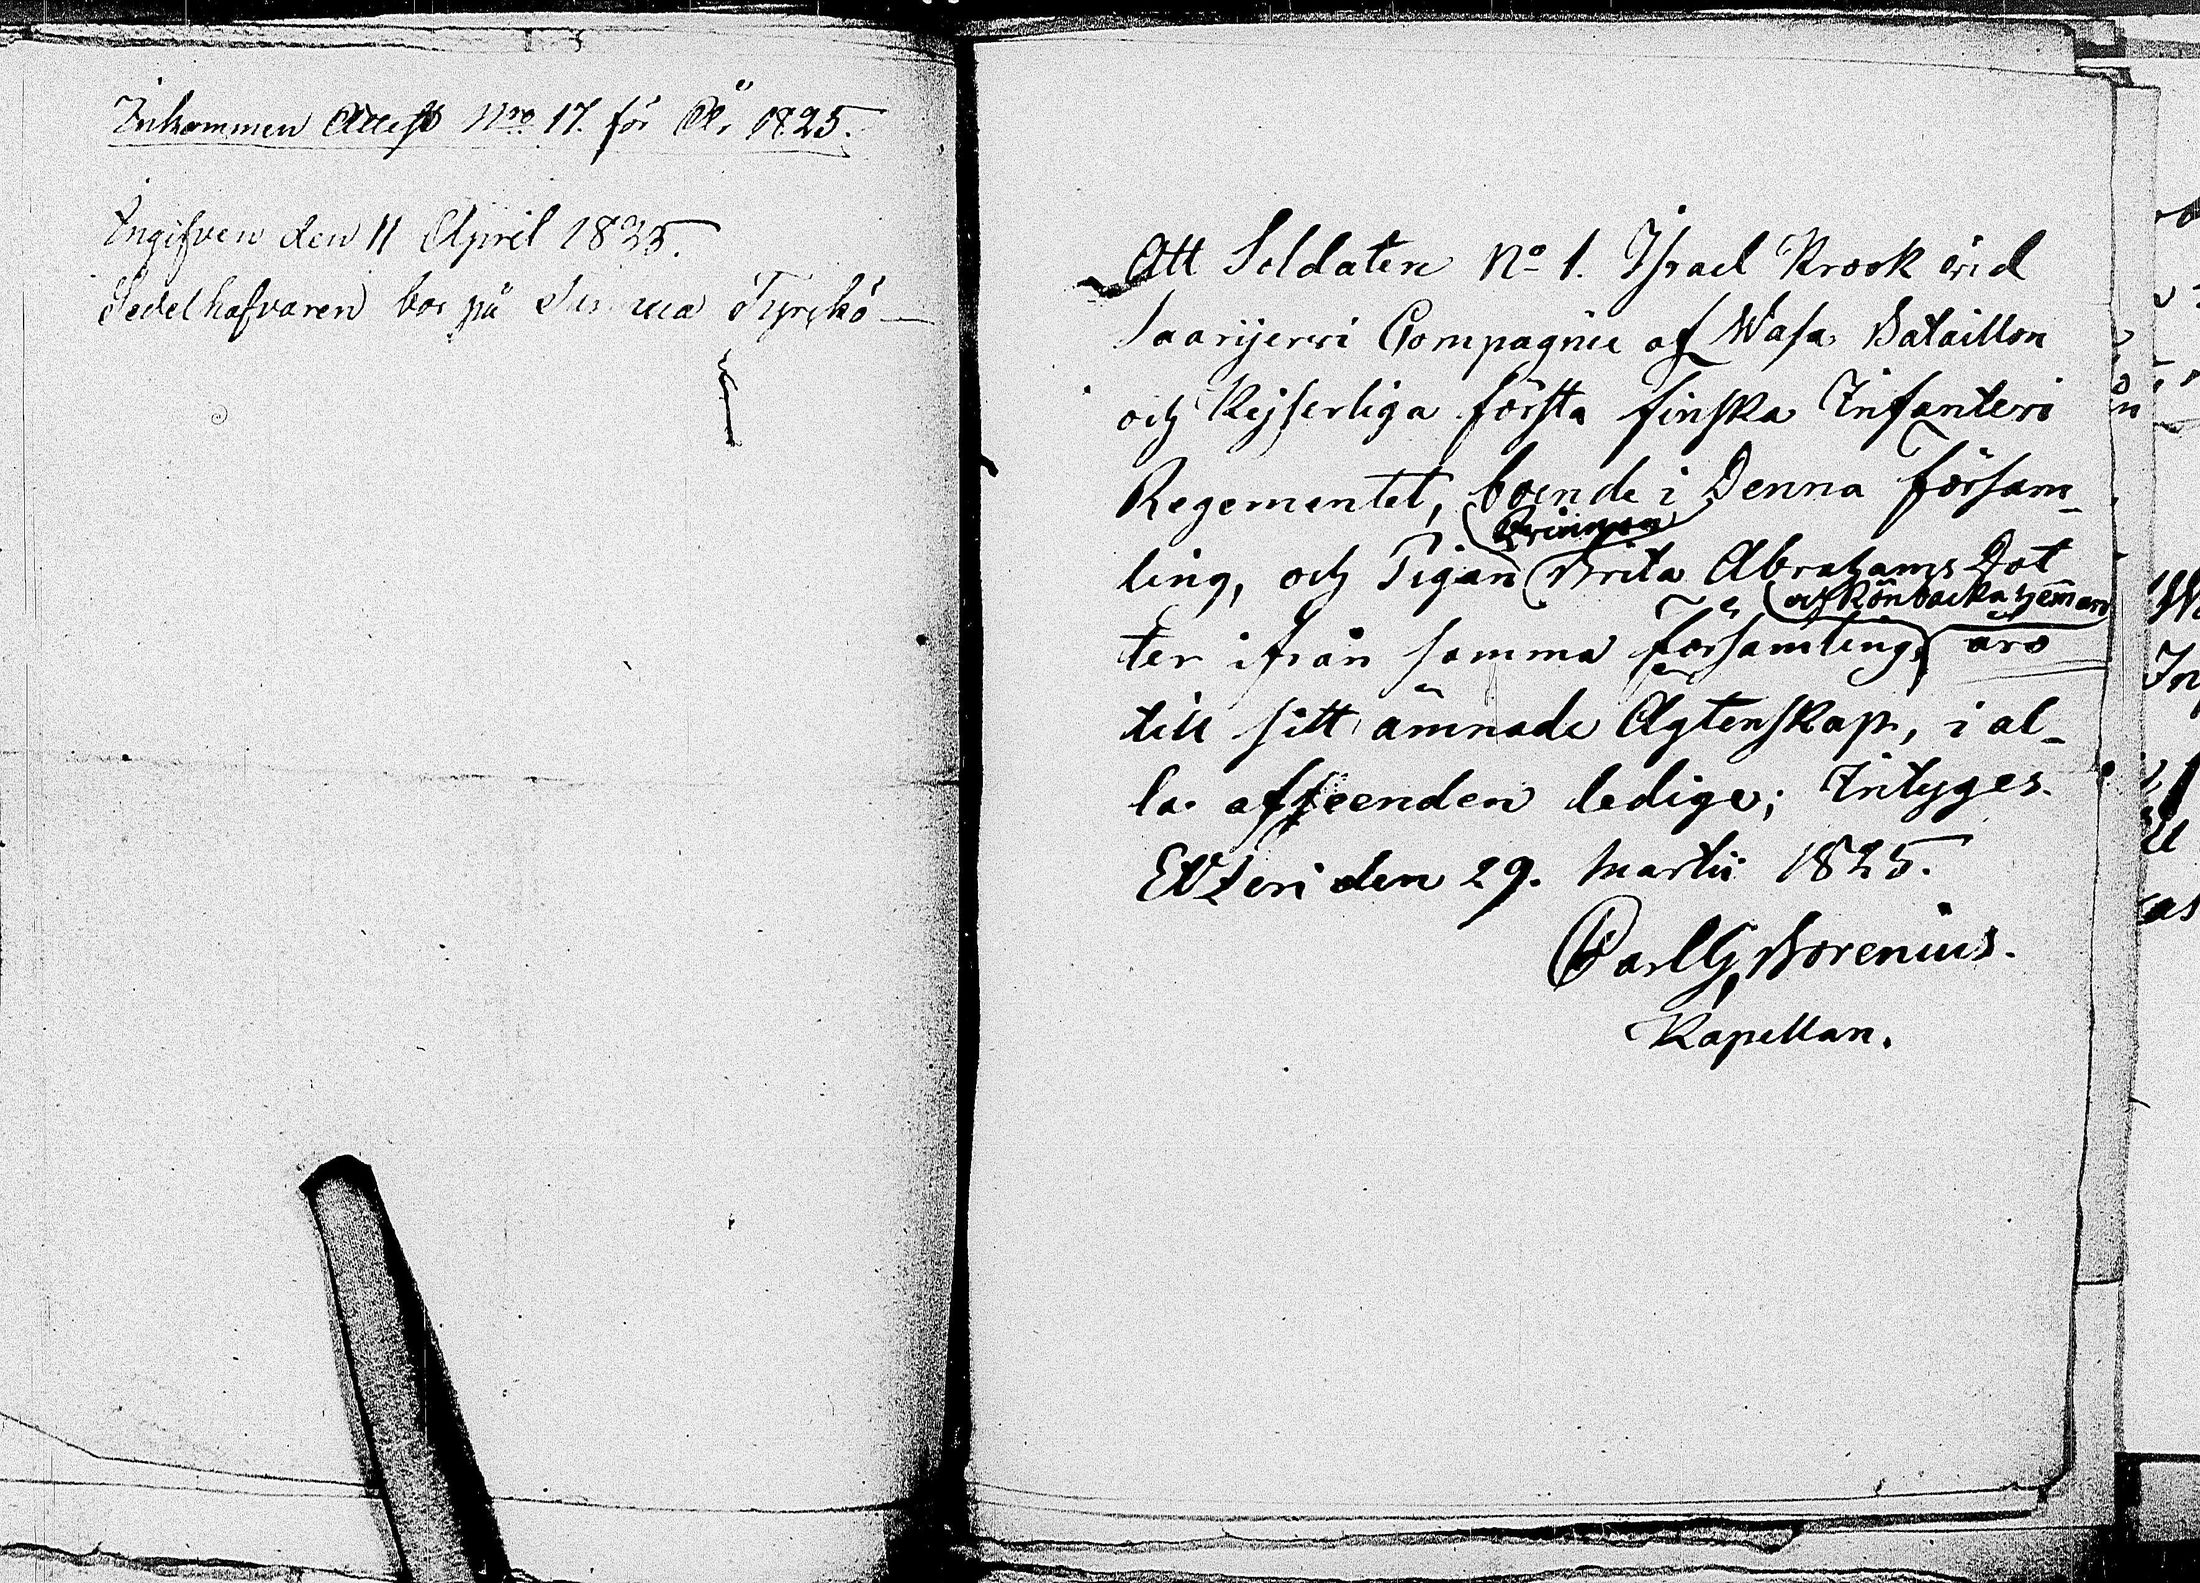 Inkommen Attest Nro 17. för År 1825.
Ingifven den 11 April 1825.
Sedelhafvaren bor på Turckö
Att Soldaten No 1. Israel Krook vid
Saarijerwi Compagnie af Wasa Bataillon
och Kejserliga första finska Infanteri
Regementet, boende i Denna Försam-
ling, och Pigan (Qvinnan) Brita Abrahams Dot
ter ifrån samma Församling, äro
till sitt ämnade Ägtenskap, i al-
la afseenden ledige; Intyges.
Etzeri den 29. Martii 1825.
Carl G. Borenius.
Kapellan.